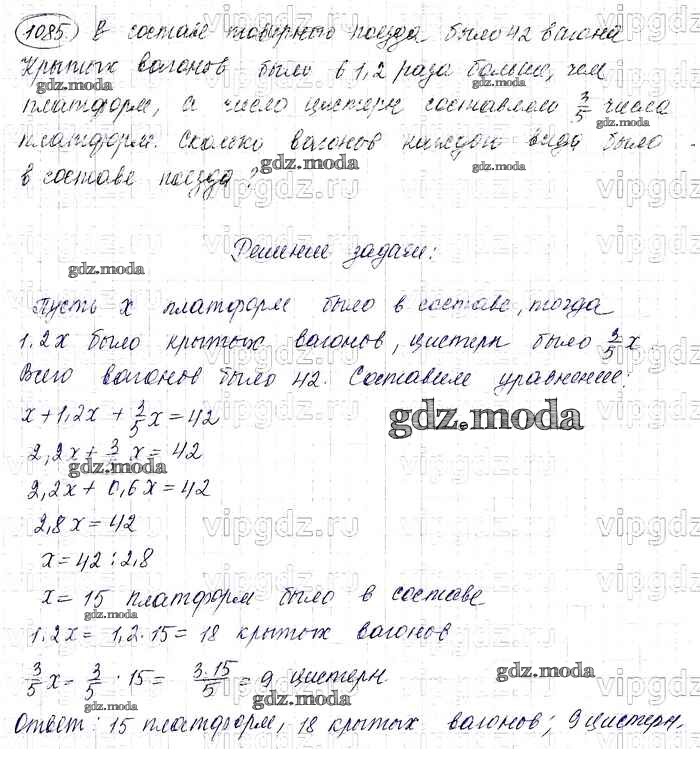 1085. В составе товарного поезда было 42 вагона
Крытых вагонов было в 1,2 раза больше, чем
платформ, а число цистерн составляло 3/5 числа
платформ. Сколько вагонов каждого вида было
в составе поезда?
Решение задачи:
Пусть x платформ было в составе, тогда
1.2x было крытых вагонов, цистерн было 3/5 x
Всего вагонов было 42. Составим уравнение:
x+1,2x + 3/5 x = 42
gdz.moda
2,2x + 3/5 x = 42
2,2x + 0,6x = 42
2,8x = 42
x = 42 : 2,8
x = 15 платформ было в составе
1.2x = 1,2·15 = 18 крытых вагонов
3/5 x = 3/5 · 15 = 3·15/5 = 9 цистерн
Ответ: 15 платформ, 18 крытых вагонов; 9 цистерн.
vipgdz.ru